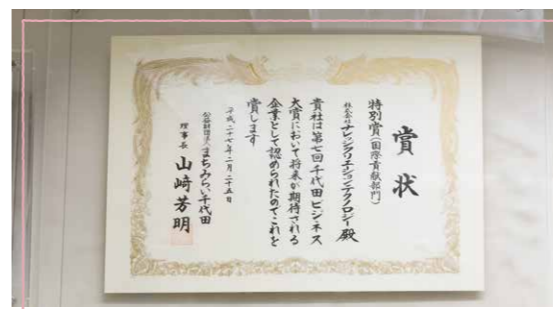 賞状
特別賞(国際貢献部門)
株式会社ナレッジクリエーションテクノロジー殿
貴社は第七回千代田ビジネス
大賞において将来が期待される
企業として認められたのでこれを
賞します
平成二十七年二月二十五日
公益財団法人まちみらい千代田
理事長 山﨑芳明